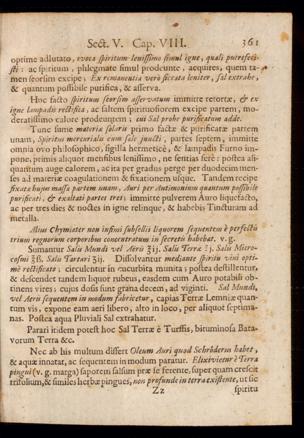 Sect. V. Cap. VIII. 361
optime adlutato, evoca spiritum lenissimo simul igne, quali putrefeci-
sti: ac spiritum, phlegmate simul prodeunte, acquires, quem ta-
men seorsim excipe. Ex remanentia verò siccata leniter, sal extrahe,
& quantum possibile purifica, & asserva.
Hoc facto spiritum seorsim asservatum immitte retortæ, & ex
igne lampadis rectifica, ac saltem spirituosiorem excipe partem, mo-
deratissimo calore prodeuntem: cui Sal probe purificatum adde.
Tune sume materiæ salaris primo factæ & purificatæ partem
unam, Spiritus mercurialis cum sale juncti, partes septem, immitte
omnia ovo philosophico, sigilla hermeticè, & lampadis Furno im-
pone, primis aliquot mensibus lenissimo, ne sentias ferè: postea ali-
quantum auge calorem, ac ita per gradus perge per duodecim men-
ses ad materiæ coagulationem & fixationem usque. Tandem recipe
fixatæ hujus massæ partem unam, Auri per Antimonium quantum possibile
purificati, & exaltati partes tres: immitte pulverem Auro liquefacto,
ac per tres dies & noctes in igne relinque, & habebis Tincturam ad
metalla.
Alius Chymiater non infimi subsellii liquorem sequentem è perfectis
trium regnorum corporibus concentratum in secretis habebat. v. g.
Sumantur Salis Mundi vel Aeris ʒij. Salis Terræ ʒj. Salis Micro-
cosmi ℥ß. Salis Tartari ʒij. Dissolvantur mediante spiritu vini opti-
mè rectificato, circulentur in cucurbita munita; postea destillentur,
& descendet tandem liquor rubeus, easdem cum Auro potabili ob-
tinens vires: cujus dosis sunt grana decem, ad viginti. Sal Mundi,
vel Aeris sequentem in modum fabricetur, capias Terræ Lemniæ quan-
tum vis, expone eam aeri libero, alto in loco, per aliquot septima-
nas. Postea aqua Pluviali Sal extrahatur.
Parari itidem potest hoc Sal Terræ è Turffis, bituminosa Bata-
vorum Terra &c.
Nec ab his multum differt Oleum Auri quod Schröderus habet,
& aquæ innatat, ac sequentem in modum paratur. Elixivietur è Terra
pingui (v. g. marga) saporem salsum præ se ferente, super quam crescit
trifolium, & similes herbæ pingues, non profunde in terra existente, ut sic
Zz spiritu